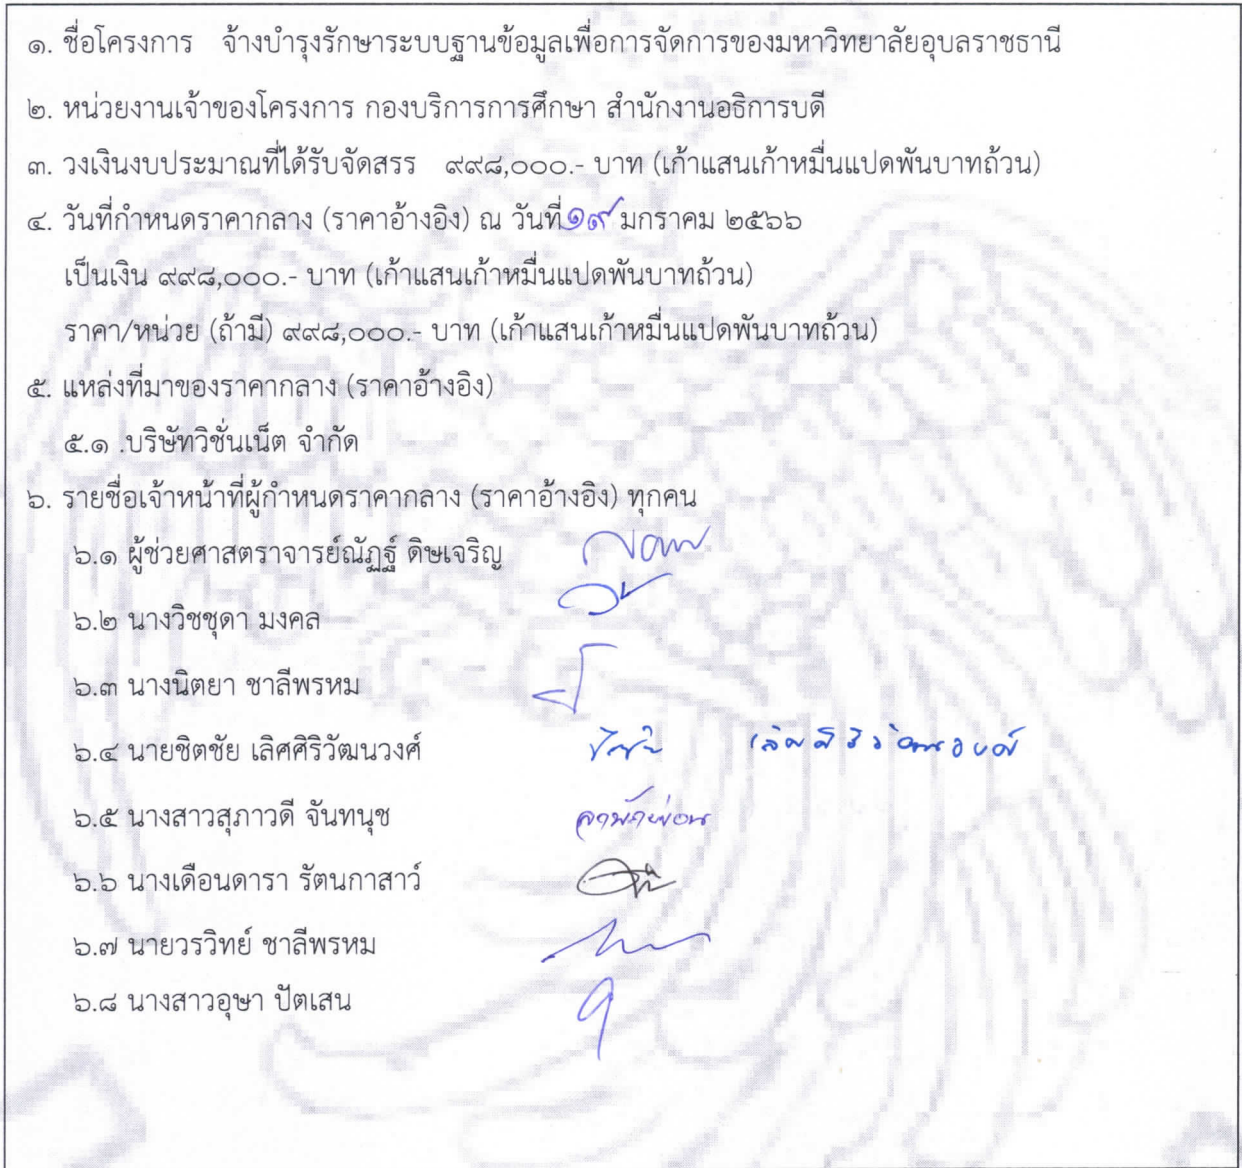 ๑. ชื่อโครงการ จ้างบำรุงรักษาระบบฐานข้อมูลเพื่อการจัดการของมหาวิทยาลัยอุบลราชธานี
๒. หน่วยงานเจ้าของโครงการ กองบริการการศึกษา สำนักงานอธิการบดี
๓. วงเงินงบประมาณที่ได้รับจัดสรร ๙๙๘,๐๐๐.- บาท (เก้าแสนเก้าหมื่นแปดพันบาทถ้วน)
๔. วันที่กำหนดราคากลาง (ราคาอ้างอิง) ณ วันที่ ๑๙ มกราคม ๒๕๖๖
เป็นเงิน ๙๙๘,๐๐๐.- บาท (เก้าแสนเก้าหมื่นแปดพันบาทถ้วน)
ราคา/หน่วย (ถ้ามี) ๙๙๘,๐๐๐.- บาท (เก้าแสนเก้าหมื่นแปดพันบาทถ้วน)
๕. แหล่งที่มาของราคากลาง (ราคาอ้างอิง)
๕.๑ .บริษัทวิชั่นเน็ต จำกัด
๖. รายชื่อเจ้าหน้าที่ผู้กำหนดราคากลาง (ราคาอ้างอิง) ทุกคน
๖.๑ ผู้ช่วยศาสตราจารย์ณัฏฐ์ ดิษเจริญ
๖.๒ นางวิชชุดา มงคล
๖.๓ นางนิตยา ชาลีพรหม
๖.๔ นายชิตชัย เลิศศิริวัฒนวงศ์
๖.๕ นางสาวสุภาวดี จันทนุช
๖.๖ นางเดือนดารา รัตนกาสาว์
๖.๗ นายวรวิทย์ ชาลีพรหม
๖.๘ นางสาวอุษา ปัตเสน